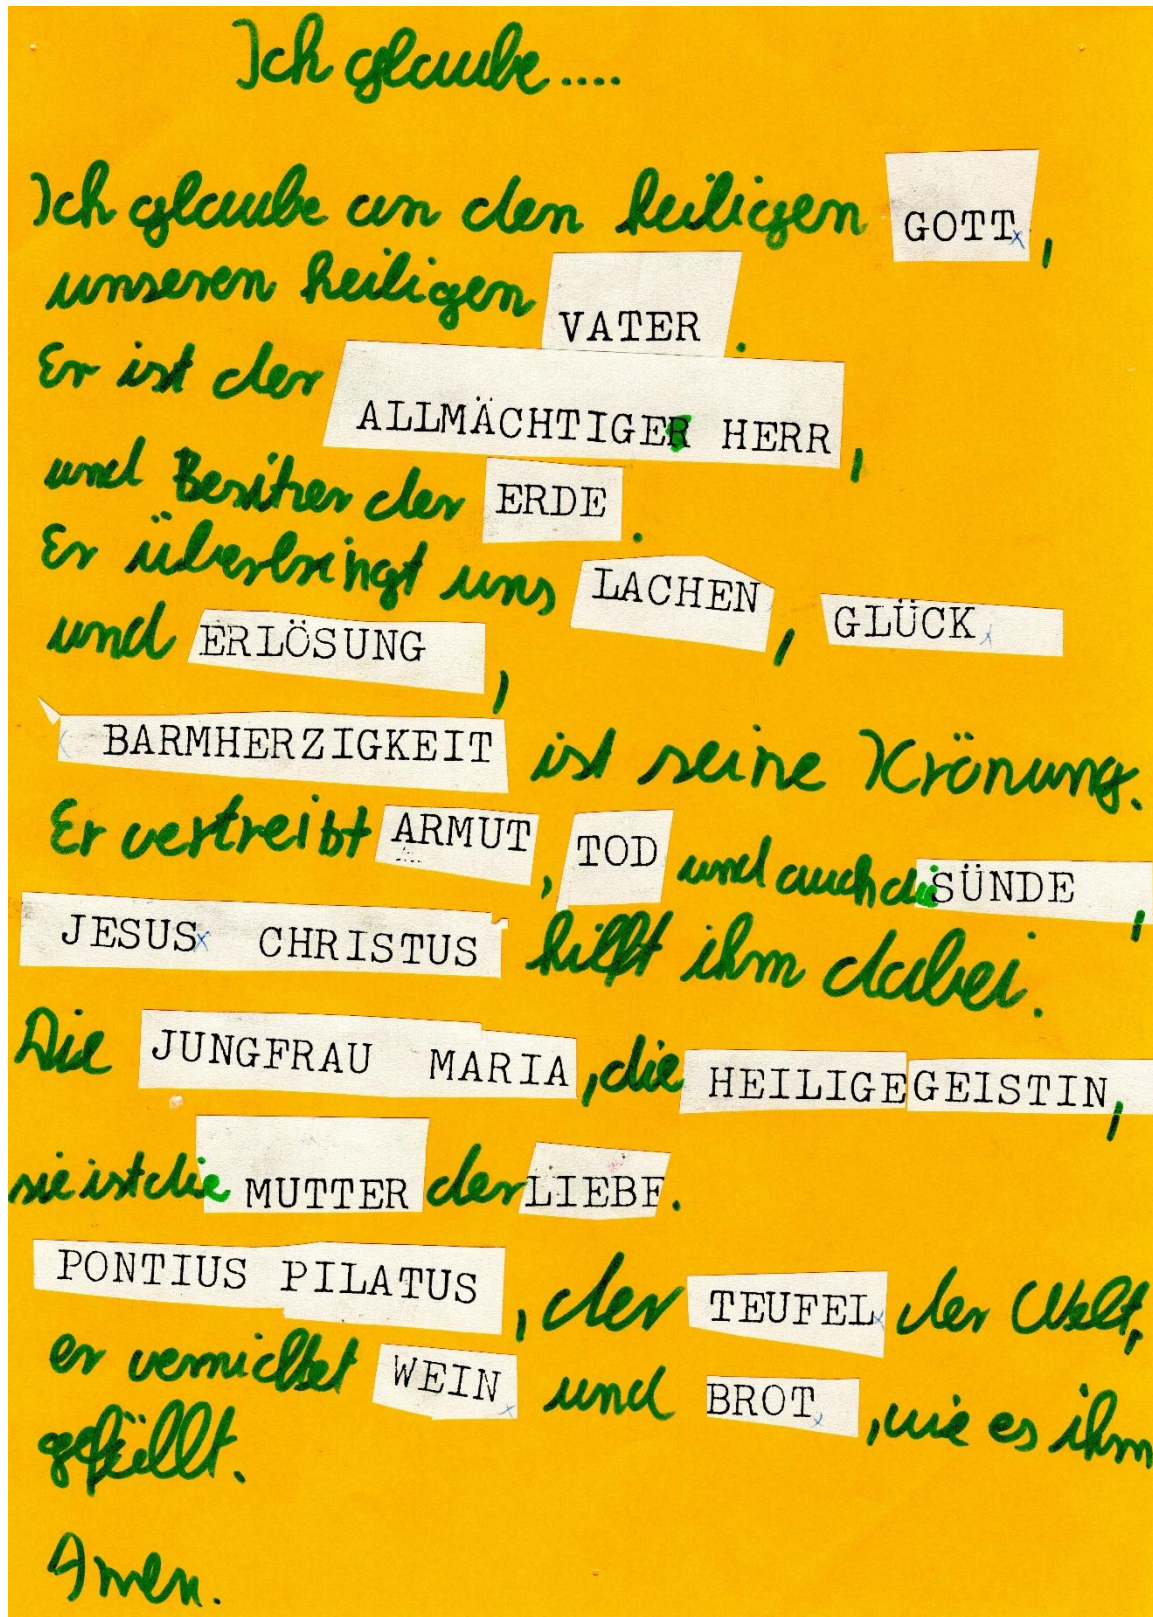 Ich glaube....
Ich glaube an den heiligen GOTT,
unseren heiligen VATER.
Er ist der ALLMÄCHTIGER HERR,
und Besitzer der ERDE.
Er überbringt uns LACHEN, GLÜCK
und ERLÖSUNG,
BARMHERZIGKEIT ist seine Krönung.
Er vertreibt ARMUT, TOD und auch die SÜNDE,
JESUS CHRISTUS hilft ihm dabei.
Die JUNGFRAU MARIA, die HEILIGE GEISTIN,
sie ist die MUTTER der LIEBE.
PONTIUS PILATUS, der TEUFEL der Welt,
er vernichtet WEIN und BROT, wie es ihm
gefällt.
Amen.